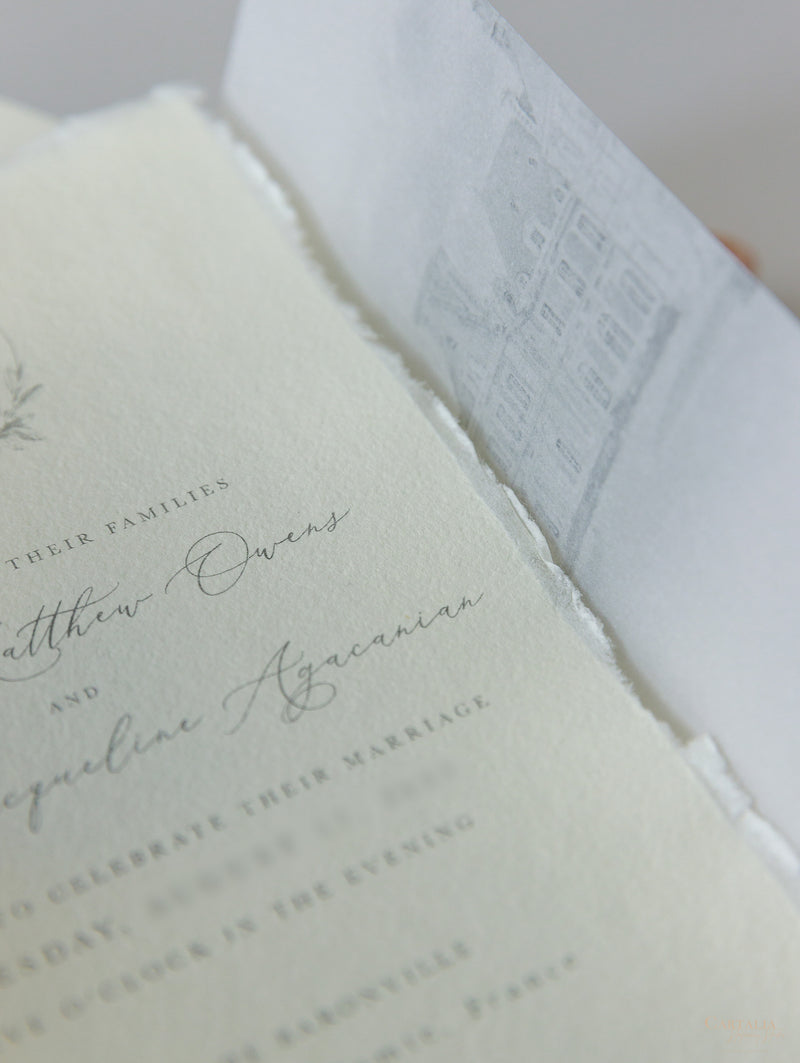 THEIR FAMILIES
atthew Owens
AND
cqueline Agacanian
TO CELEBRATE THEIR MARRIAGE
ESDAY,
VE O'CLOCK IN THE EVENING
BARONVILLE
France